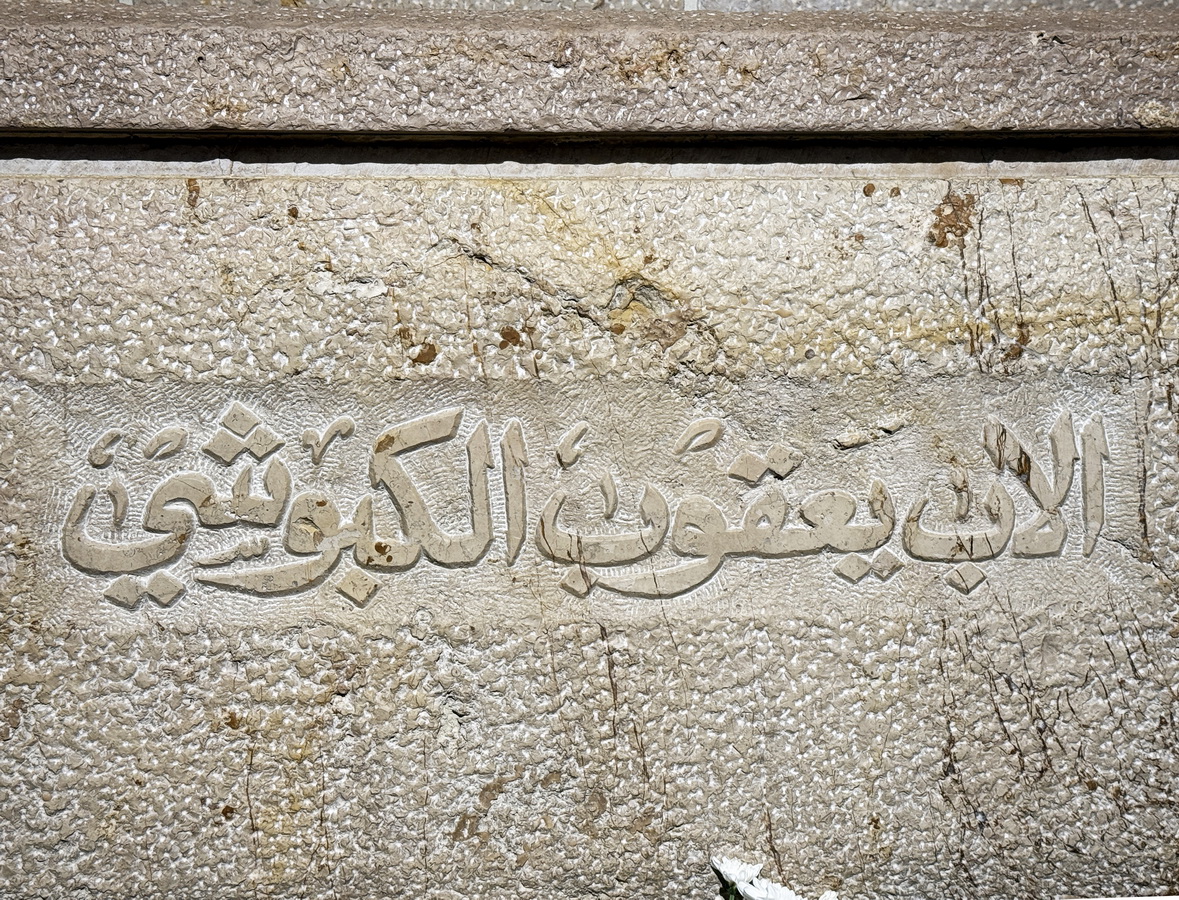 الاب يعقوب الكبوشي